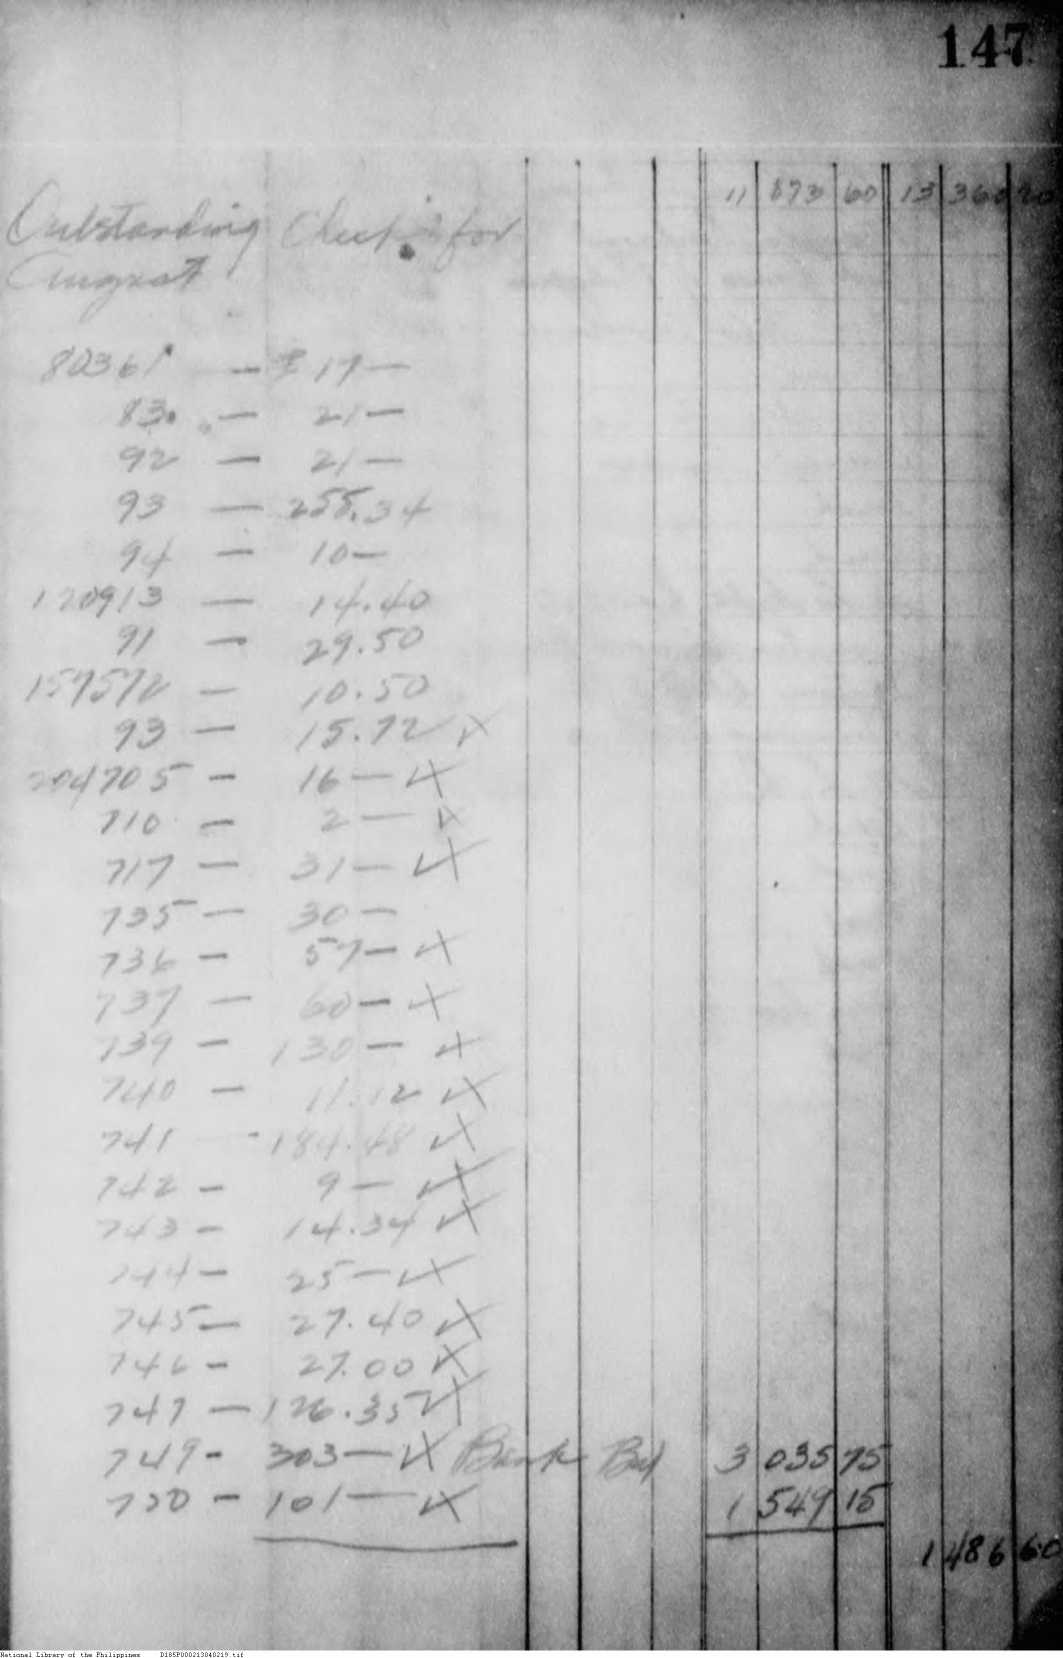 147
11 873 60 13 360 20
Outstanding Checks for
August
80361 — ₱ 17 —
83 — 21 —
92 — 21 —
93 — 255.34
94 — 10 —
120913 — 14.40
91 — 29.50
157572 — 10.50
93 — 15.72 ✓X
204705 — 16 — ✓X
710 — 2 — ✓X
717 — 31 — ✓X
735 — 30 —
736 — 57 — ✓X
737 — 60 — ✓X
739 — 130 — ✓X
740 — 11.12 ✓X
741 - 184.48 ✓X
742 — 9 — ✓X
743 — 14.34 ✓X
744 — 25 — ✓X
745 — 27.40 ✓X
746 - 27.00 ✓X
747 — 126.35 ✓X
749 - 303 — ✓X Bank Bal 3 035 75
750 — 101 — ✓X 1 549 15
1 486 60
National Library of the Philippines D185P000213040219.tif